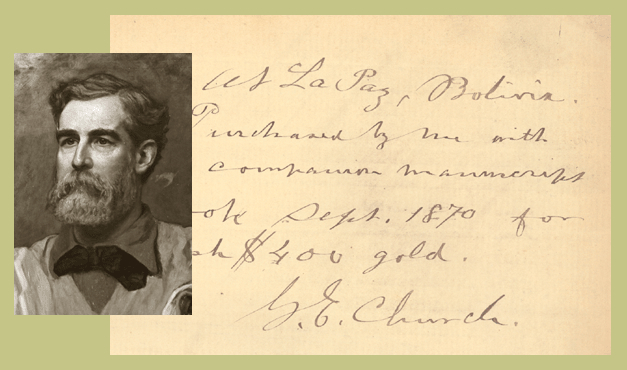 At La Paz, Bolivia.
Purchased by me with
companion manuscript
ook Sept. 1870 for
$400 gold.
G. E. Church.